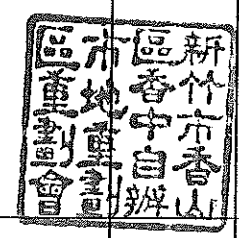 新竹市香山
區香中自辦
市地重劃
區重劃會